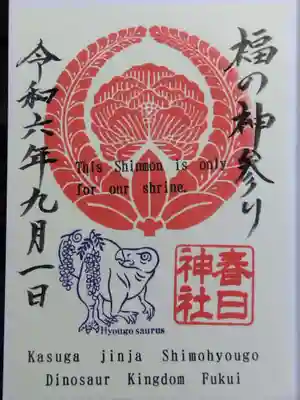 福の神参り
This Shinmon is only
for our shrine.
令和六年九月一日
Hyougo saurus
春日
神社
Kasuga jinja Shimohyougo
Dinosaur Kingdom Fukui